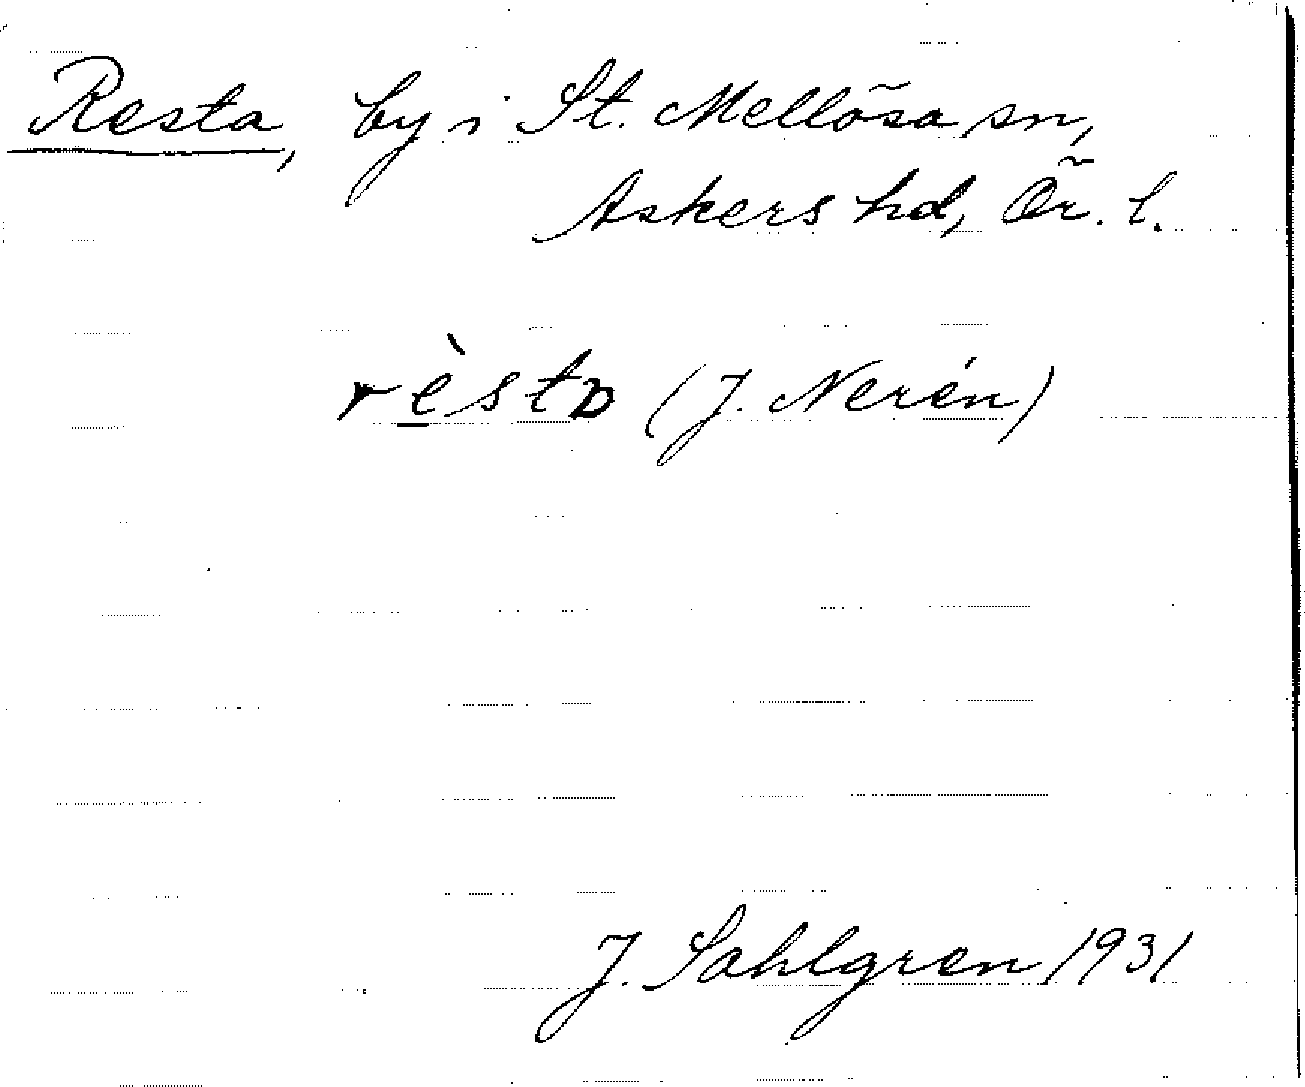 Resta, by i St. Mellösa sn,
Askers hd, Ör. l.
rèstɒ (J. Nerén)
J. Sahlgren 1931